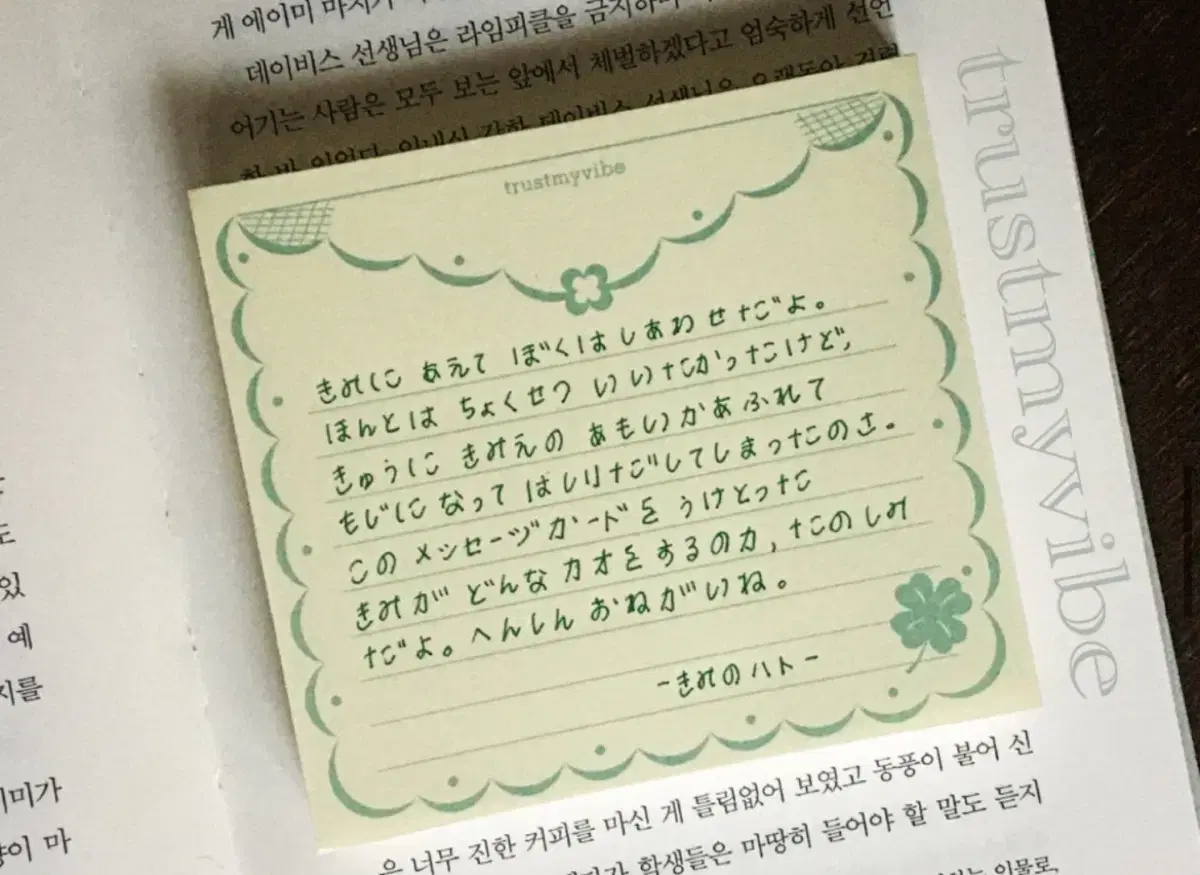 게 에이미 마치가
데이비스 선생님은 라임피클을 금지하
어기는 사람은 모두 보는 앞에서 체벌하겠다고 엄숙하게 선언
trustmyvibe
きみに あえて ぼくは しあわせだよ。
ほんとは ちょくせつ いいたかったけど、
きゅうに きみえの あもいかあふれて
もじに なって はしりだしてしまったのさ。
この メッセージカードを うけとった
きみが どんな カオをするのか, たのしみ
だよ。へんしん おねがいね。
-きみのハトー
trustmyvibe
도
있
예
지를
이미가
마
은 너무 진한 커피를 마신 게 틀림없어 보였고 동풍이 불어 신
학생들은 마땅히 들어야 할 말도 듣지
인물로,